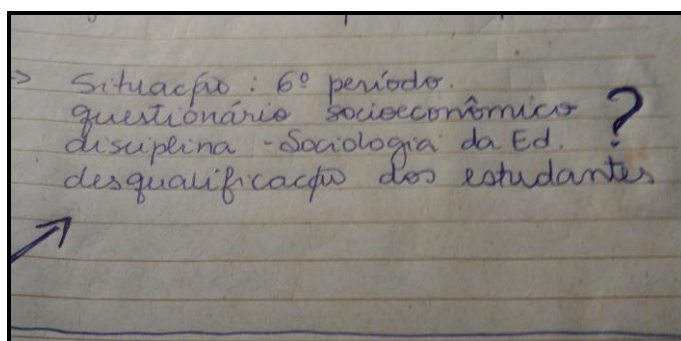 → Situação : 6º período.
questionário socioeconômico ?
disciplina - Sociologia da Ed.
desqualificação dos estudantes